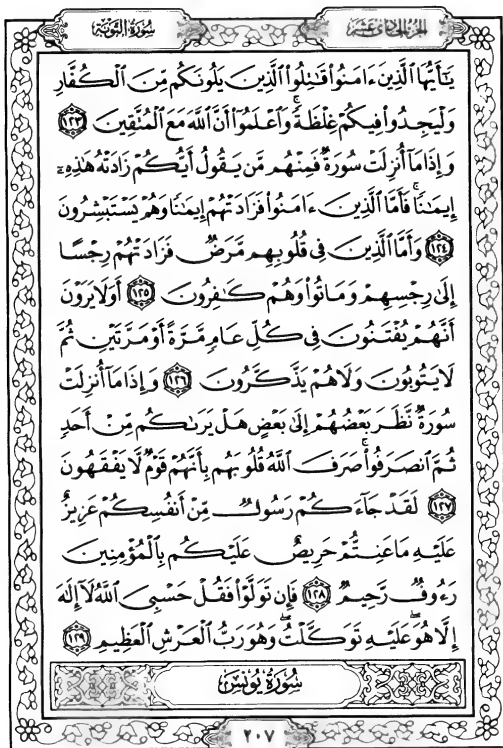 الجزء الحادي عشر
سورة التوبة
يَٰٓأَيُّهَا ٱلَّذِينَ ءَامَنُوا۟ قَٰتِلُوا۟ ٱلَّذِينَ يَلُونَكُم مِّنَ ٱلْكُفَّارِ
وَلْيَجِدُوا۟ فِيكُمْ غِلْظَةً ۚ وَٱعْلَمُوٓا۟ أَنَّ ٱللَّهَ مَعَ ٱلْمُتَّقِينَ ١٢٣
وَإِذَا مَآ أُنزِلَتْ سُورَةٌ فَمِنْهُم مَّن يَقُولُ أَيُّكُمْ زَادَتْهُ هَٰذِهِۦٓ
إِيمَٰنًا ۚ فَأَمَّا ٱلَّذِينَ ءَامَنُوا۟ فَزَادَتْهُمْ إِيمَٰنًا وَهُمْ يَسْتَبْشِرُونَ
١٢٤ وَأَمَّا ٱلَّذِينَ فِى قُلُوبِهِم مَّرَضٌ فَزَادَتْهُمْ رِجْسًا
إِلَىٰ رِجْسِهِمْ وَمَاتُوا۟ وَهُمْ كَٰفِرُونَ ١٢٥ أَوَلَا يَرَوْنَ
أَنَّهُمْ يُفْتَنُونَ فِى كُلِّ عَامٍ مَّرَّةً أَوْ مَرَّتَيْنِ ثُمَّ
لَا يَتُوبُونَ وَلَا هُمْ يَذَّكَّرُونَ ١٢٦ وَإِذَا مَآ أُنزِلَتْ
سُورَةٌ نَّظَرَ بَعْضُهُمْ إِلَىٰ بَعْضٍ هَلْ يَرَىٰكُم مِّنْ أَحَدٍ
ثُمَّ ٱنصَرَفُوا۟ ۚ صَرَفَ ٱللَّهُ قُلُوبَهُم بِأَنَّهُمْ قَوْمٌ لَّا يَفْقَهُونَ
١٢٧ لَقَدْ جَآءَكُمْ رَسُولٌ مِّنْ أَنفُسِكُمْ عَزِيزٌ
عَلَيْهِ مَا عَنِتُّمْ حَرِيصٌ عَلَيْكُم بِٱلْمُؤْمِنِينَ
رَءُوفٌ رَّحِيمٌ ١٢٨ فَإِن تَوَلَّوْا۟ فَقُلْ حَسْبِىَ ٱللَّهُ لَآ إِلَٰهَ
إِلَّا هُوَ ۖ عَلَيْهِ تَوَكَّلْتُ ۖ وَهُوَ رَبُّ ٱلْعَرْشِ ٱلْعَظِيمِ ١٢٩
سُورَةُ يُونُسَ
٢٠٧